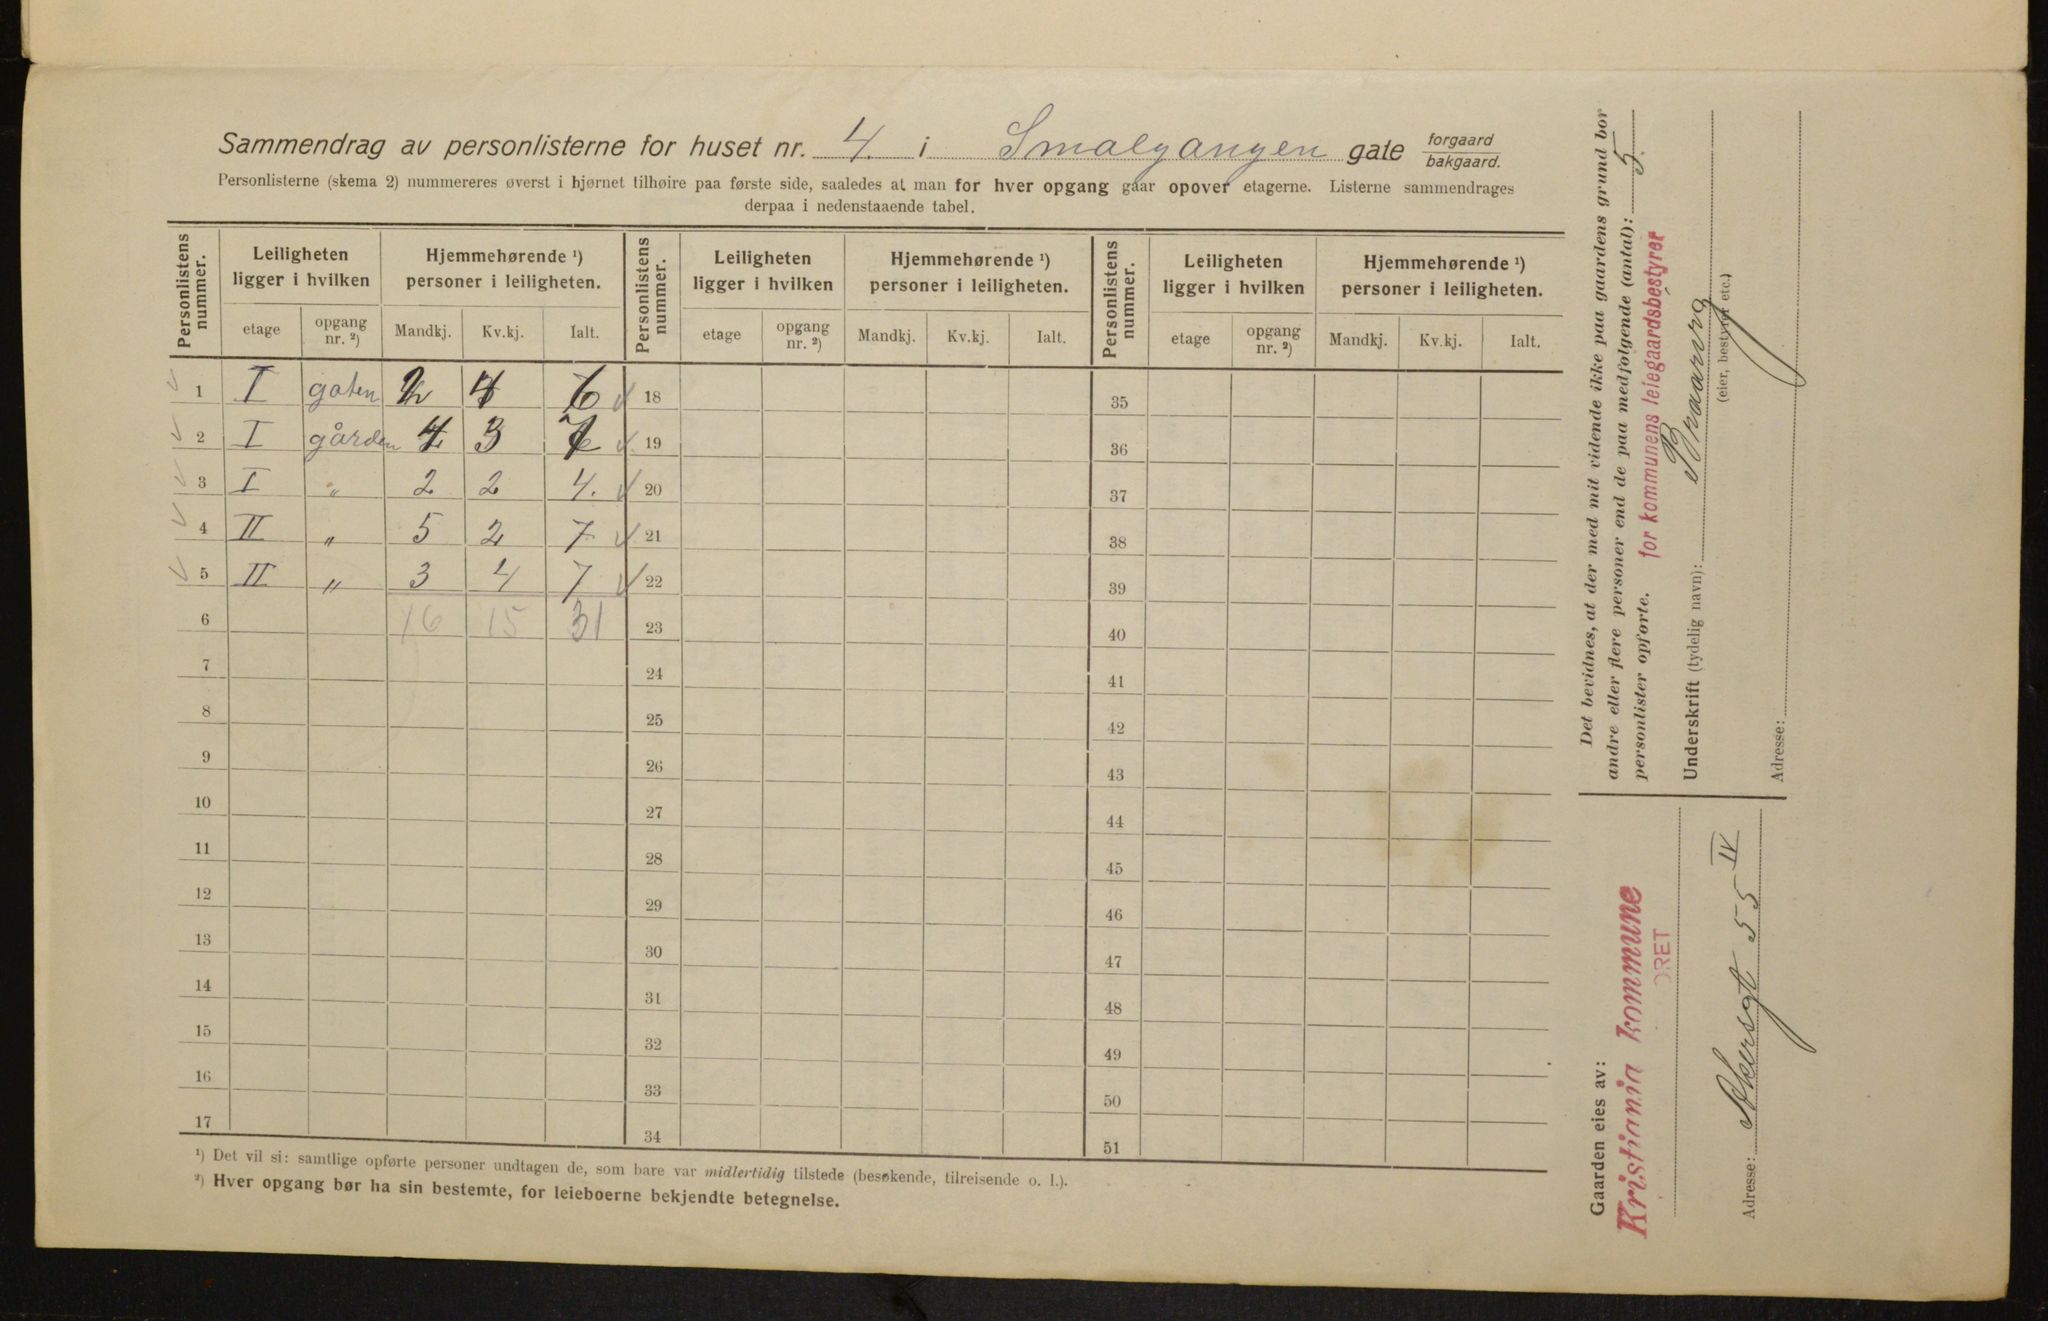 Sammendrag av personlisterne for huset nr. 4. i Smalgangen gate forgaard / bakgaard.
Personlisterne (skema 2) nummereres øverst i hjørnet tilhøire paa første side, saaledes at man for hver opgang gaar opover etagerne. Listerne sammendrages
derpaa i nedenstaaende tabel.
Personlistens nummer. Leiligheten ligger i hvilken Hjemmehørende ¹) personer i leiligheten. Personlistens nummer. Leiligheten ligger i hvilken Hjemmehørende ¹) personer i leiligheten. Personlistens nummer. Leiligheten ligger i hvilken Hjemmehørende ¹) personer i leiligheten.
etage opgang nr. ²) Mandkj. Kv.kj. Ialt. etage opgang nr. ²) Mandkj. Kv.kj. Ialt. etage opgang nr. ²) Mandkj. Kv.kj. Ialt.
1 I gaten 2 4 6 18 35
2 I gården 4 3 7 19 36
3 I „ 2 2 4. 20 37
4 II „ 5 2 7 21 38
5 II „ 3 4 7 22 39
6 16 15 31 23 40
7 24 41
8 25 42
9 26 43
10 27 44
11 28 45
12 29 46
13 30 47
14 31 48
15 32 49
16 33 50
17 34 51
¹) Det vil si: samtlige opførte personer undtagen de, som bare var midlertidig tilstede (besøkende, tilreisende o. l.).
²) Hver opgang bør ha sin bestemte, for leieboerne bekjendte betegnelse.
Det bevidnes, at der med mit vidende ikke paa gaardens grund bor
andre eller flere personer end de paa medfølgende (antal): 5.
personlister opførte. for kommunens leiegaardsbestyrer
Underskrift (tydelig navn):
(eier, bestyrer etc.)
Adresse:
Gaarden eies av:
Kristiania kommune
ORET
Adresse: Akersgt 55 IV